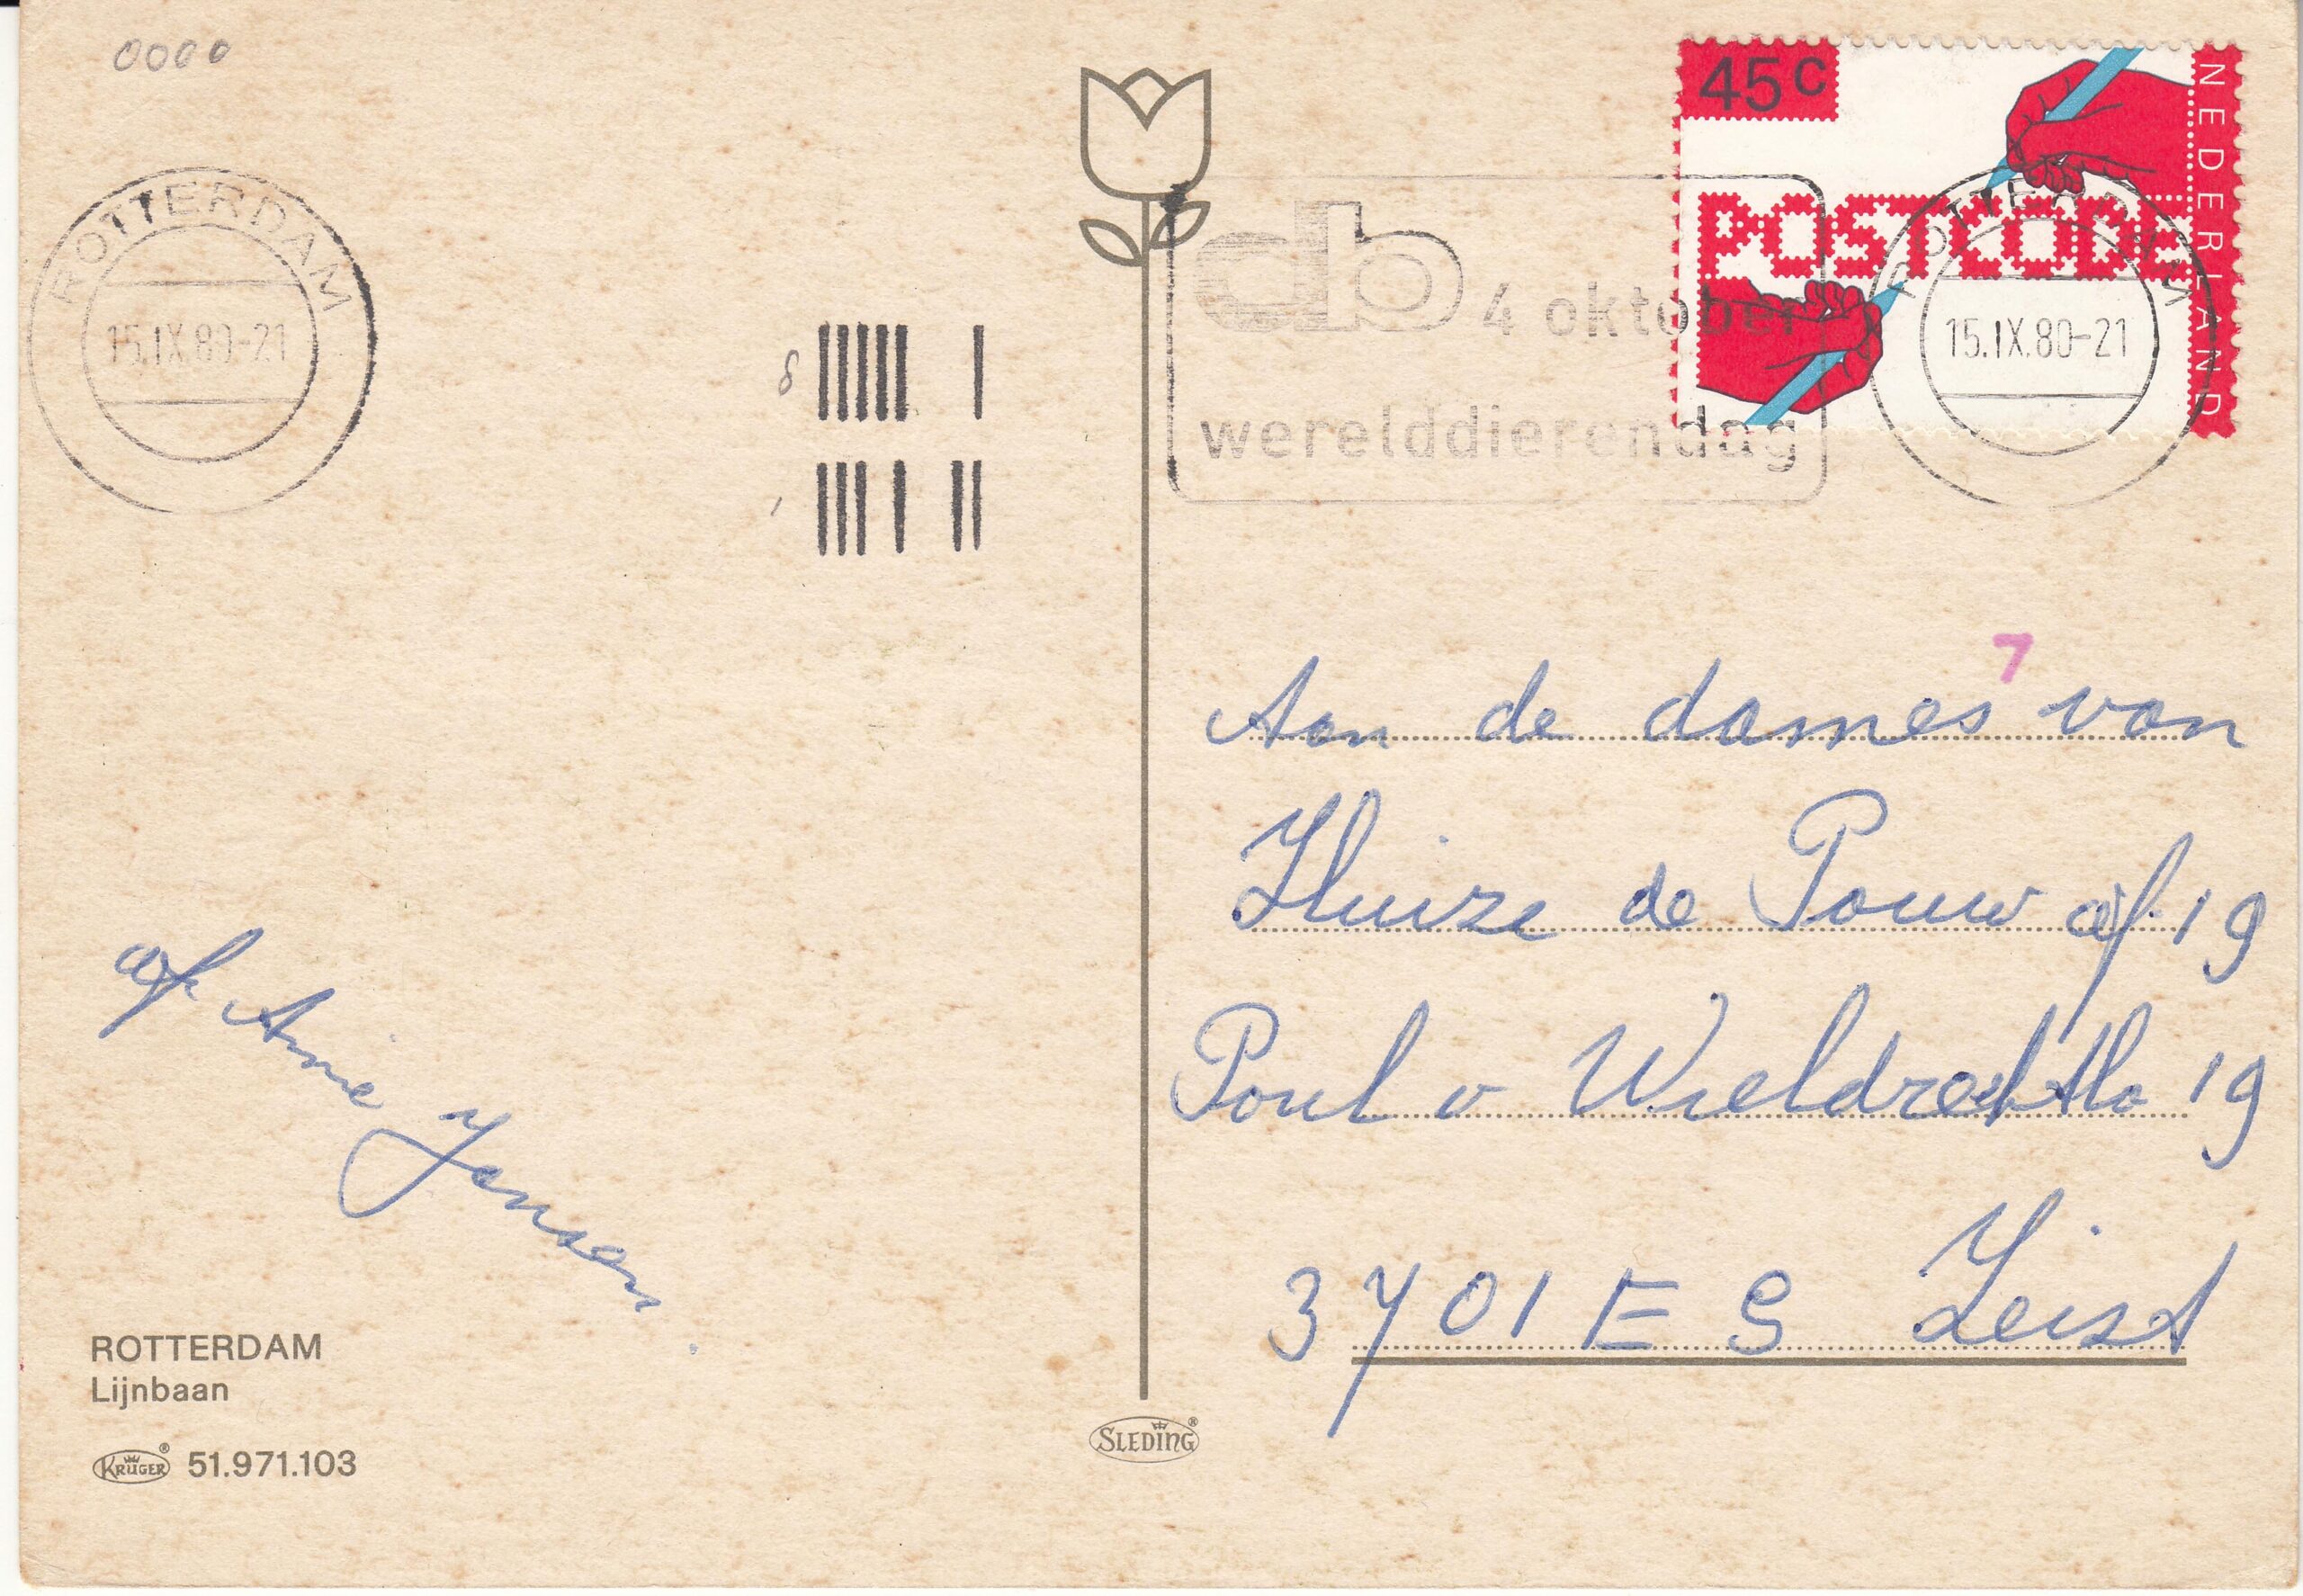 0000
ROTTERDAM
15.IX.80-21
8
45c
NEDERLAND
POSTCODE
ROTTERDAM
15.IX.80-21
db 4 oktober
werelddierendag
7
Aan de dames van
Huize de Pouw afl 19
Poul v 19
3701 E S Zeist
af
Jansen
ROTTERDAM
Lijnbaan
KRÜGER® 51.971.103
SLEDING®